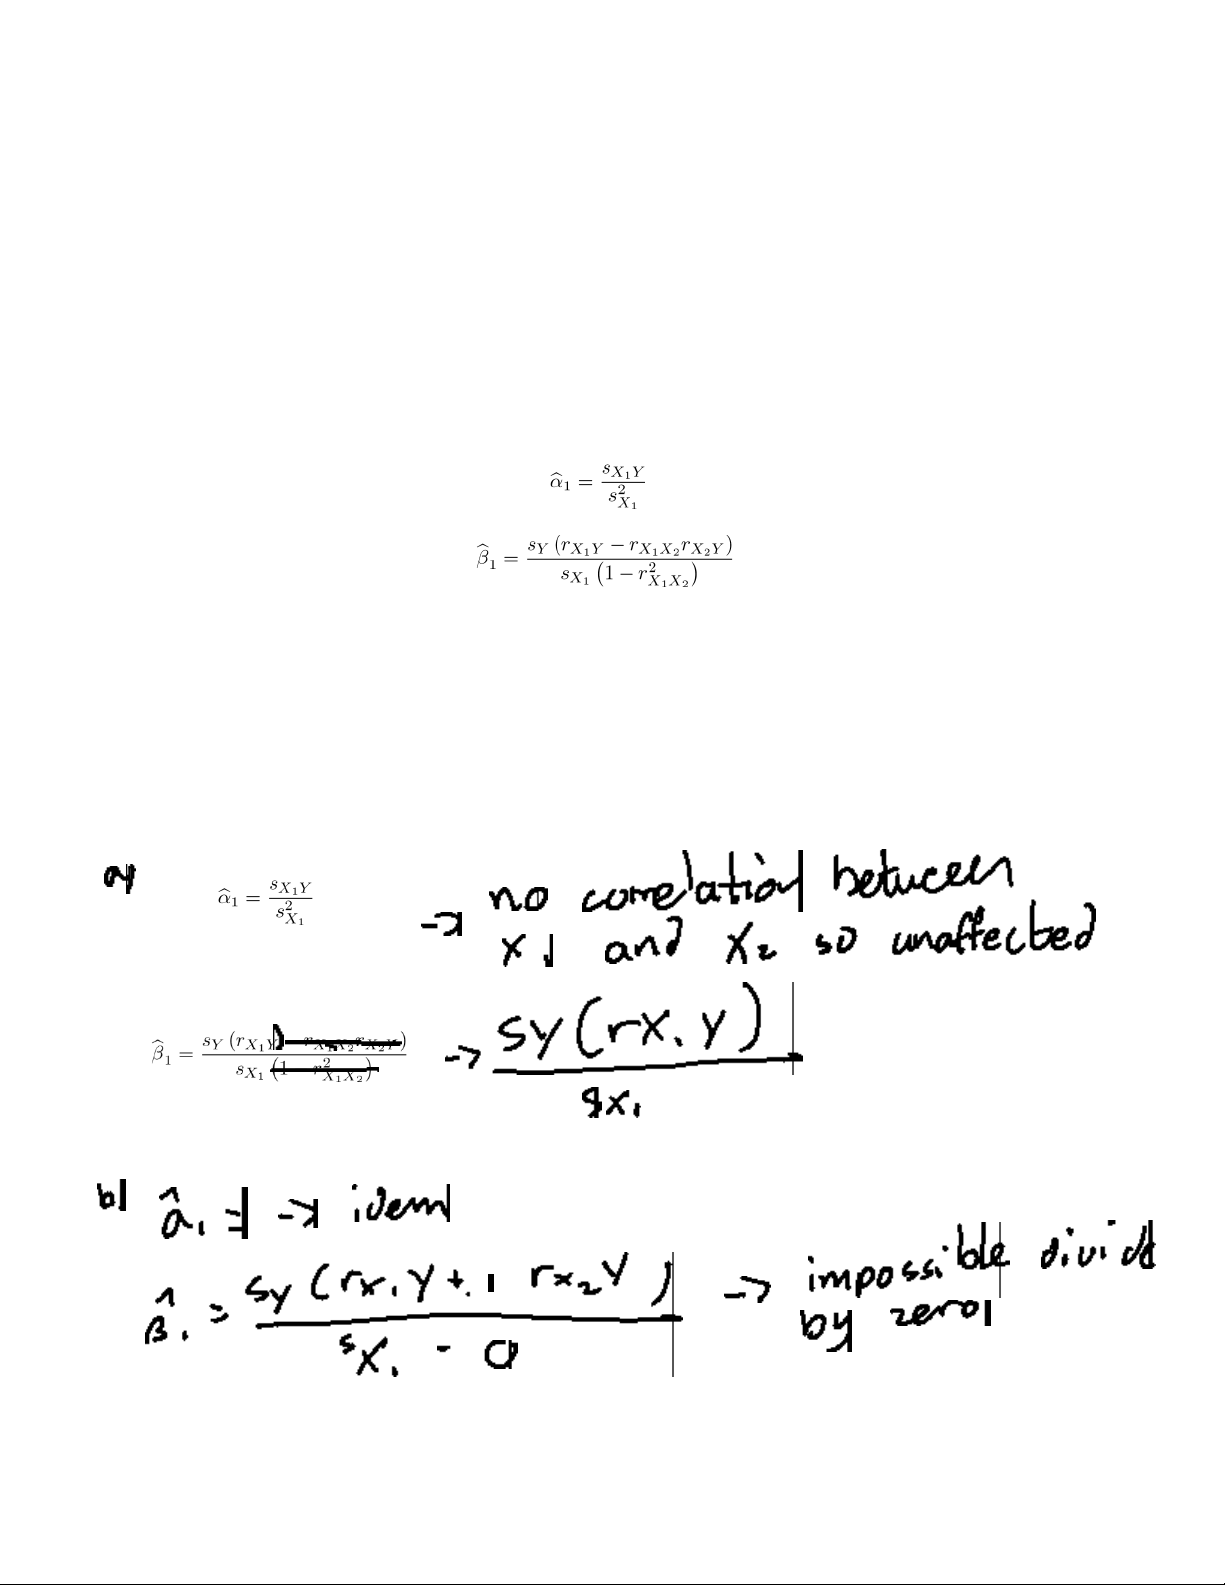 α̂₁ = s_{X₁Y} / s²_{X₁}
β̂₁ = s_Y (r_{X₁Y} − r_{X₁X₂} r_{X₂Y}) / s_{X₁} (1 − r²_{X₁X₂})
a) α̂₁ = s_{X₁Y} / s²_{X₁} -> no correlation between
X1 and X₂ so unaffected
β̂₁ = s_Y (r_{X₁Y}) − r_{X₁X₂} r_{X₂Y}) / s_{X₁} (1 − r²_{X₁X₂}) -> sy(rx₁y) / sx₁
b) â₁ = -> idem
β̂₁ = sy (rx₁y + 1 rx₂y) / sx₁ - 0 -> impossible divide
by zero